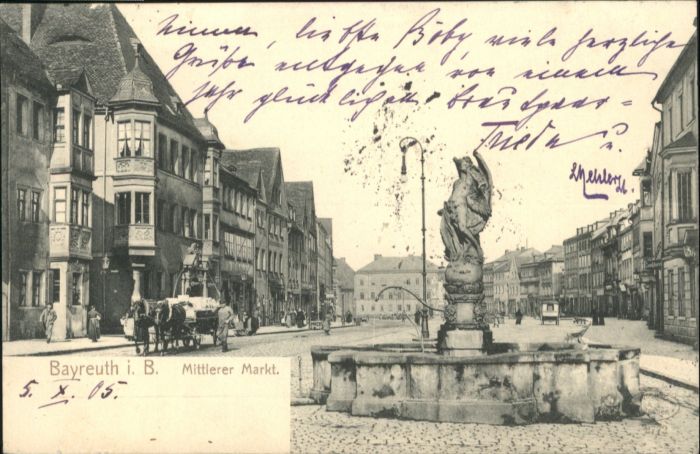 nimm, liebste Bööy, viele herzliche
Grüße entgegen von einem
sehr glücklichen Brautpaar =
Frieda u.
Bayreuth i. B. Mittlerer Markt.
5. X. 05.